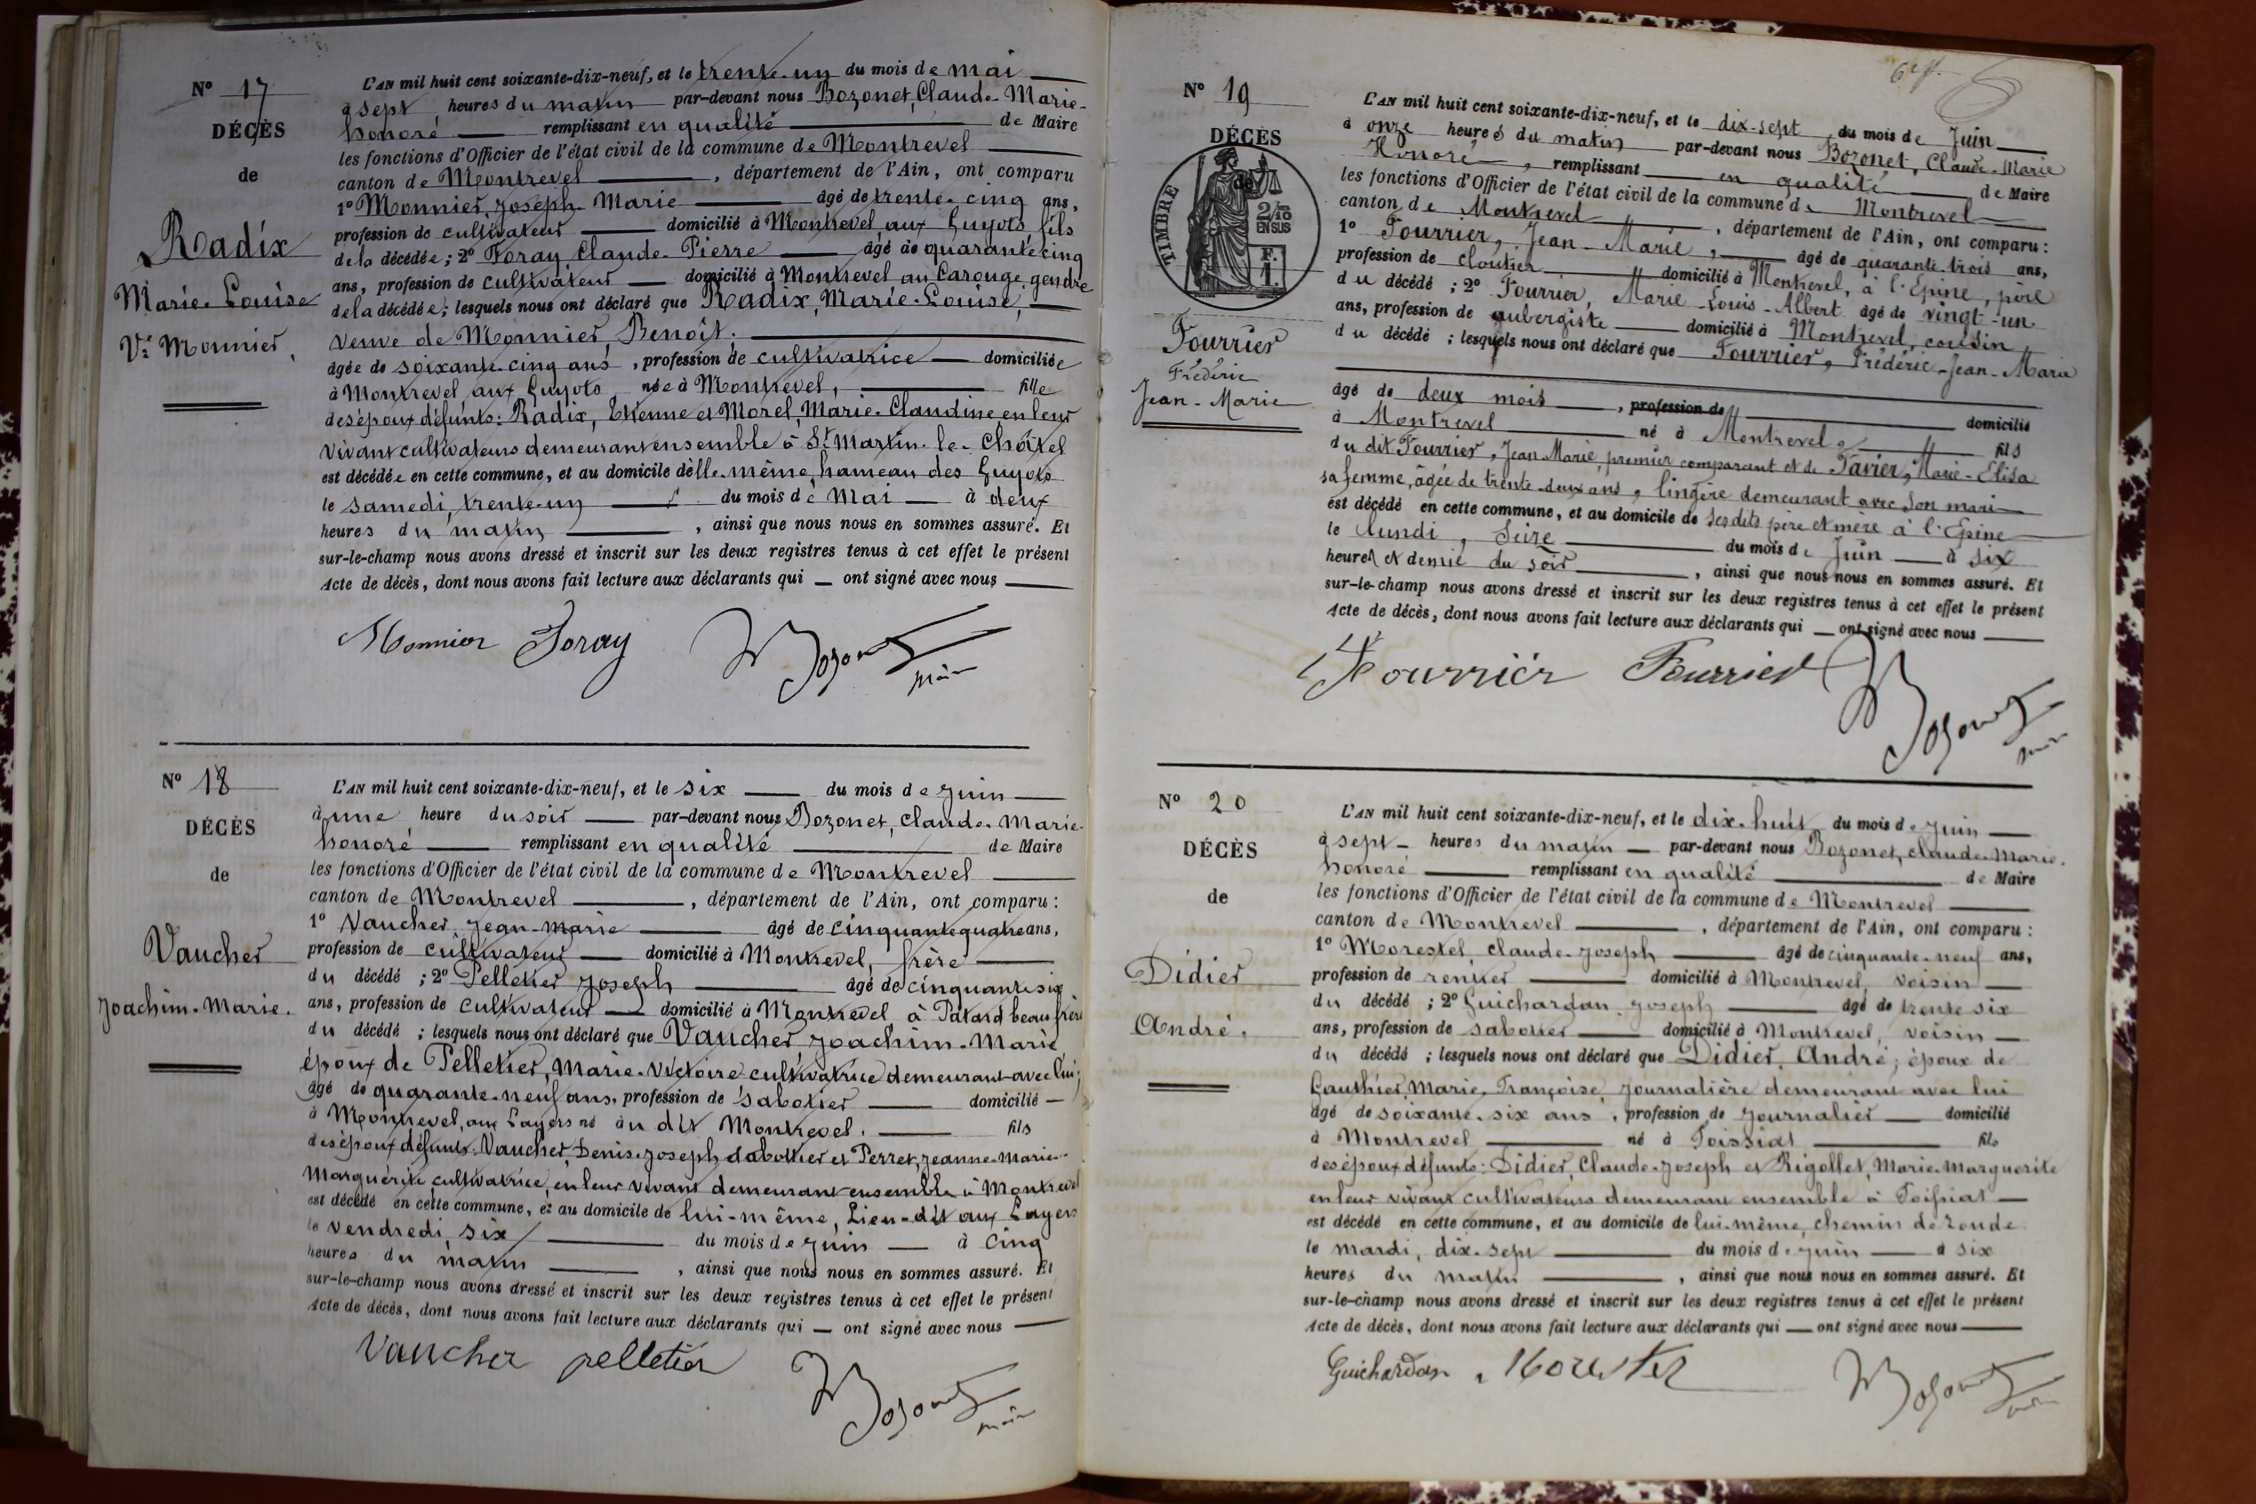 Nº 17
DÉCÈS
de
Radix
Marie-Louise
Vᵉ Monnier,
L'AN mil huit cent soixante-dix-neuf, et le trente-un du mois de mai
à sept heures du matin par-devant nous Bozonet, Claude-Marie-
honoré remplissant en qualité de Maire
les fonctions d'Officier de l'état civil de la commune de Montrevel
canton de Montrevel, département de l'Ain, ont comparu
1º Monnier, Joseph-Marie âgé de trente-cinq ans,
profession de cultivateur domicilié à Montrevel, aux Guyots fils
de la décédée; 2º Foray Claude-Pierre âgé de quarante cinq
ans, profession de cultivateur domicilié à Montrevel au Carouge, gendre
de la décédée; lesquels nous ont déclaré que Radix, Marie-Louise,
veuve de Monnier, Benoît.
âgée de soixante-cinq ans, profession de cultivatrice domiciliée
à Montrevel, aux Guyots née à Montrevel, fille
des époux défunts: Radix, Etienne et Morel, Marie-Claudine en leur
vivant cultivateurs demeurant ensemble à St Martin-le-Châtel
est décédée en cette commune, et au domicile d'elle-même, hameau des Guyots
le samedi, trente-un du mois de Mai à deux
heures du matin, ainsi que nous nous en sommes assuré. Et
sur-le-champ nous avons dressé et inscrit sur les deux registres tenus à cet effet le présent
Acte de décès, dont nous avons fait lecture aux déclarants qui ont signé avec nous
Monnier Foray Bozonet
maire
Nº 18
DÉCÈS
de
Vaucher
Joachim-Marie.
L'AN mil huit cent soixante-dix-neuf, et le six du mois de Juin
à une heure du soir par-devant nous Bozonet, Claude-Marie-
honoré remplissant en qualité de Maire
les fonctions d'Officier de l'état civil de la commune de Montrevel
canton de Montrevel, département de l'Ain, ont comparu:
1º Vaucher, Jean-Marie âgé de cinquante quatre ans,
profession de cultivateur domicilié à Montrevel, frère
du décédé; 2º Pelletier Joseph âgé de cinquante six
ans, profession de cultivateur domicilié à Montrevel à Patard beau frère
du décédé; lesquels nous ont déclaré que Vaucher Joachim-Marie
époux de Pelletier, Marie-Victoire cultivatrice demeurant avec lui;
âgé de quarante-neuf ans, profession de sabotier domicilié
à Montrevel, aux Layers né au dit Montrevel. fils
des époux défunts: Vaucher, Denis-Joseph sabotier et Perret, Jeanne-Marie-
Marguérite cultivatrice, en leur vivant demeurant ensemble à Montrevel
est décédé en cette commune, et au domicile de lui-même, Lieu-dit aux Layers
le vendredi, six du mois de Juin à cinq
heures du matin, ainsi que nous nous en sommes assuré. Et
sur-le-champ nous avons dressé et inscrit sur les deux registres tenus à cet effet le présent
Acte de décès, dont nous avons fait lecture aux déclarants qui ont signé avec nous
Vaucher pelletier Bozonet
maire
Nº 19
DÉCÈS
de
TIMBRE
2/10
EN SUS
F.
1.
Fourrier
Frédéric
Jean-Marie
L'AN mil huit cent soixante-dix-neuf, et le dix-sept du mois de Juin
à onze heures du matin par-devant nous Bozonet, Claude-Marie
Honoré, remplissant en qualité de Maire
les fonctions d'Officier de l'état civil de la commune de Montrevel
canton de Montrevel, département de l'Ain, ont comparu:
1º Fourrier, Jean-Marie, âgé de quarante-trois ans,
profession de cloutier domicilié à Montrevel, à l'Epine, père
du décédé; 2º Fourrier, Marie-Louis-Albert âgé de vingt-un
ans, profession de aubergiste domicilié à Montrevel, cousin
du décédé; lesquels nous ont déclaré que Fourrier, Frédéric-Jean-Marie
âgé de deux mois, profession de domicilié
à Montrevel né à Montrevel fils
du dit Fourrier, Jean Marie, premier comparant et de Favier, Marie-Elisa
sa femme, âgée de trente-deux ans, lingère demeurant avec son mari
est décédé en cette commune, et au domicile de ses dits père et mère à l'Epine
le lundi, seize du mois de Juin à six
heures et demie du soir, ainsi que nous nous en sommes assuré. Et
sur-le-champ nous avons dressé et inscrit sur les deux registres tenus à cet effet le présent
Acte de décès, dont nous avons fait lecture aux déclarants qui ont signé avec nous
Fourrier Fourrier Bozonet
maire
Nº 20
DÉCÈS
de
Didier
André.
L'AN mil huit cent soixante-dix-neuf, et le dix-huit du mois de Juin
à sept heures du matin par-devant nous Bozonet, Claude-Marie-
honoré remplissant en qualité de Maire
les fonctions d'Officier de l'état civil de la commune de Montrevel
canton de Montrevel, département de l'Ain, ont comparu:
1º Morestel, Claude-Joseph âgé de cinquante-neuf ans,
profession de rentier domicilié à Montrevel, voisin
du décédé; 2º Guichardan, Joseph âgé de trente six
ans, profession de sabotier domicilié à Montrevel, voisin
du décédé; lesquels nous ont déclaré que Didier, André; époux de
Gauthier, Marie, Françoise, Journalière demeurant avec lui
âgé de soixante-six ans, profession de Journalier domicilié
à Montrevel né à Foissiat fils
des époux défunts: Didier, Claude-Joseph et Rigollet, Marie-Marguerite
en leur vivant cultivateurs demeurant ensemble à Foissiat
est décédé en cette commune, et au domicile de lui-même, chemin de ronde
le mardi, dix-sept du mois de Juin à six
heures du matin, ainsi que nous nous en sommes assuré. Et
sur-le-champ nous avons dressé et inscrit sur les deux registres tenus à cet effet le présent
Acte de décès, dont nous avons fait lecture aux déclarants qui ont signé avec nous
Guichardan Morestel Bozonet
maire